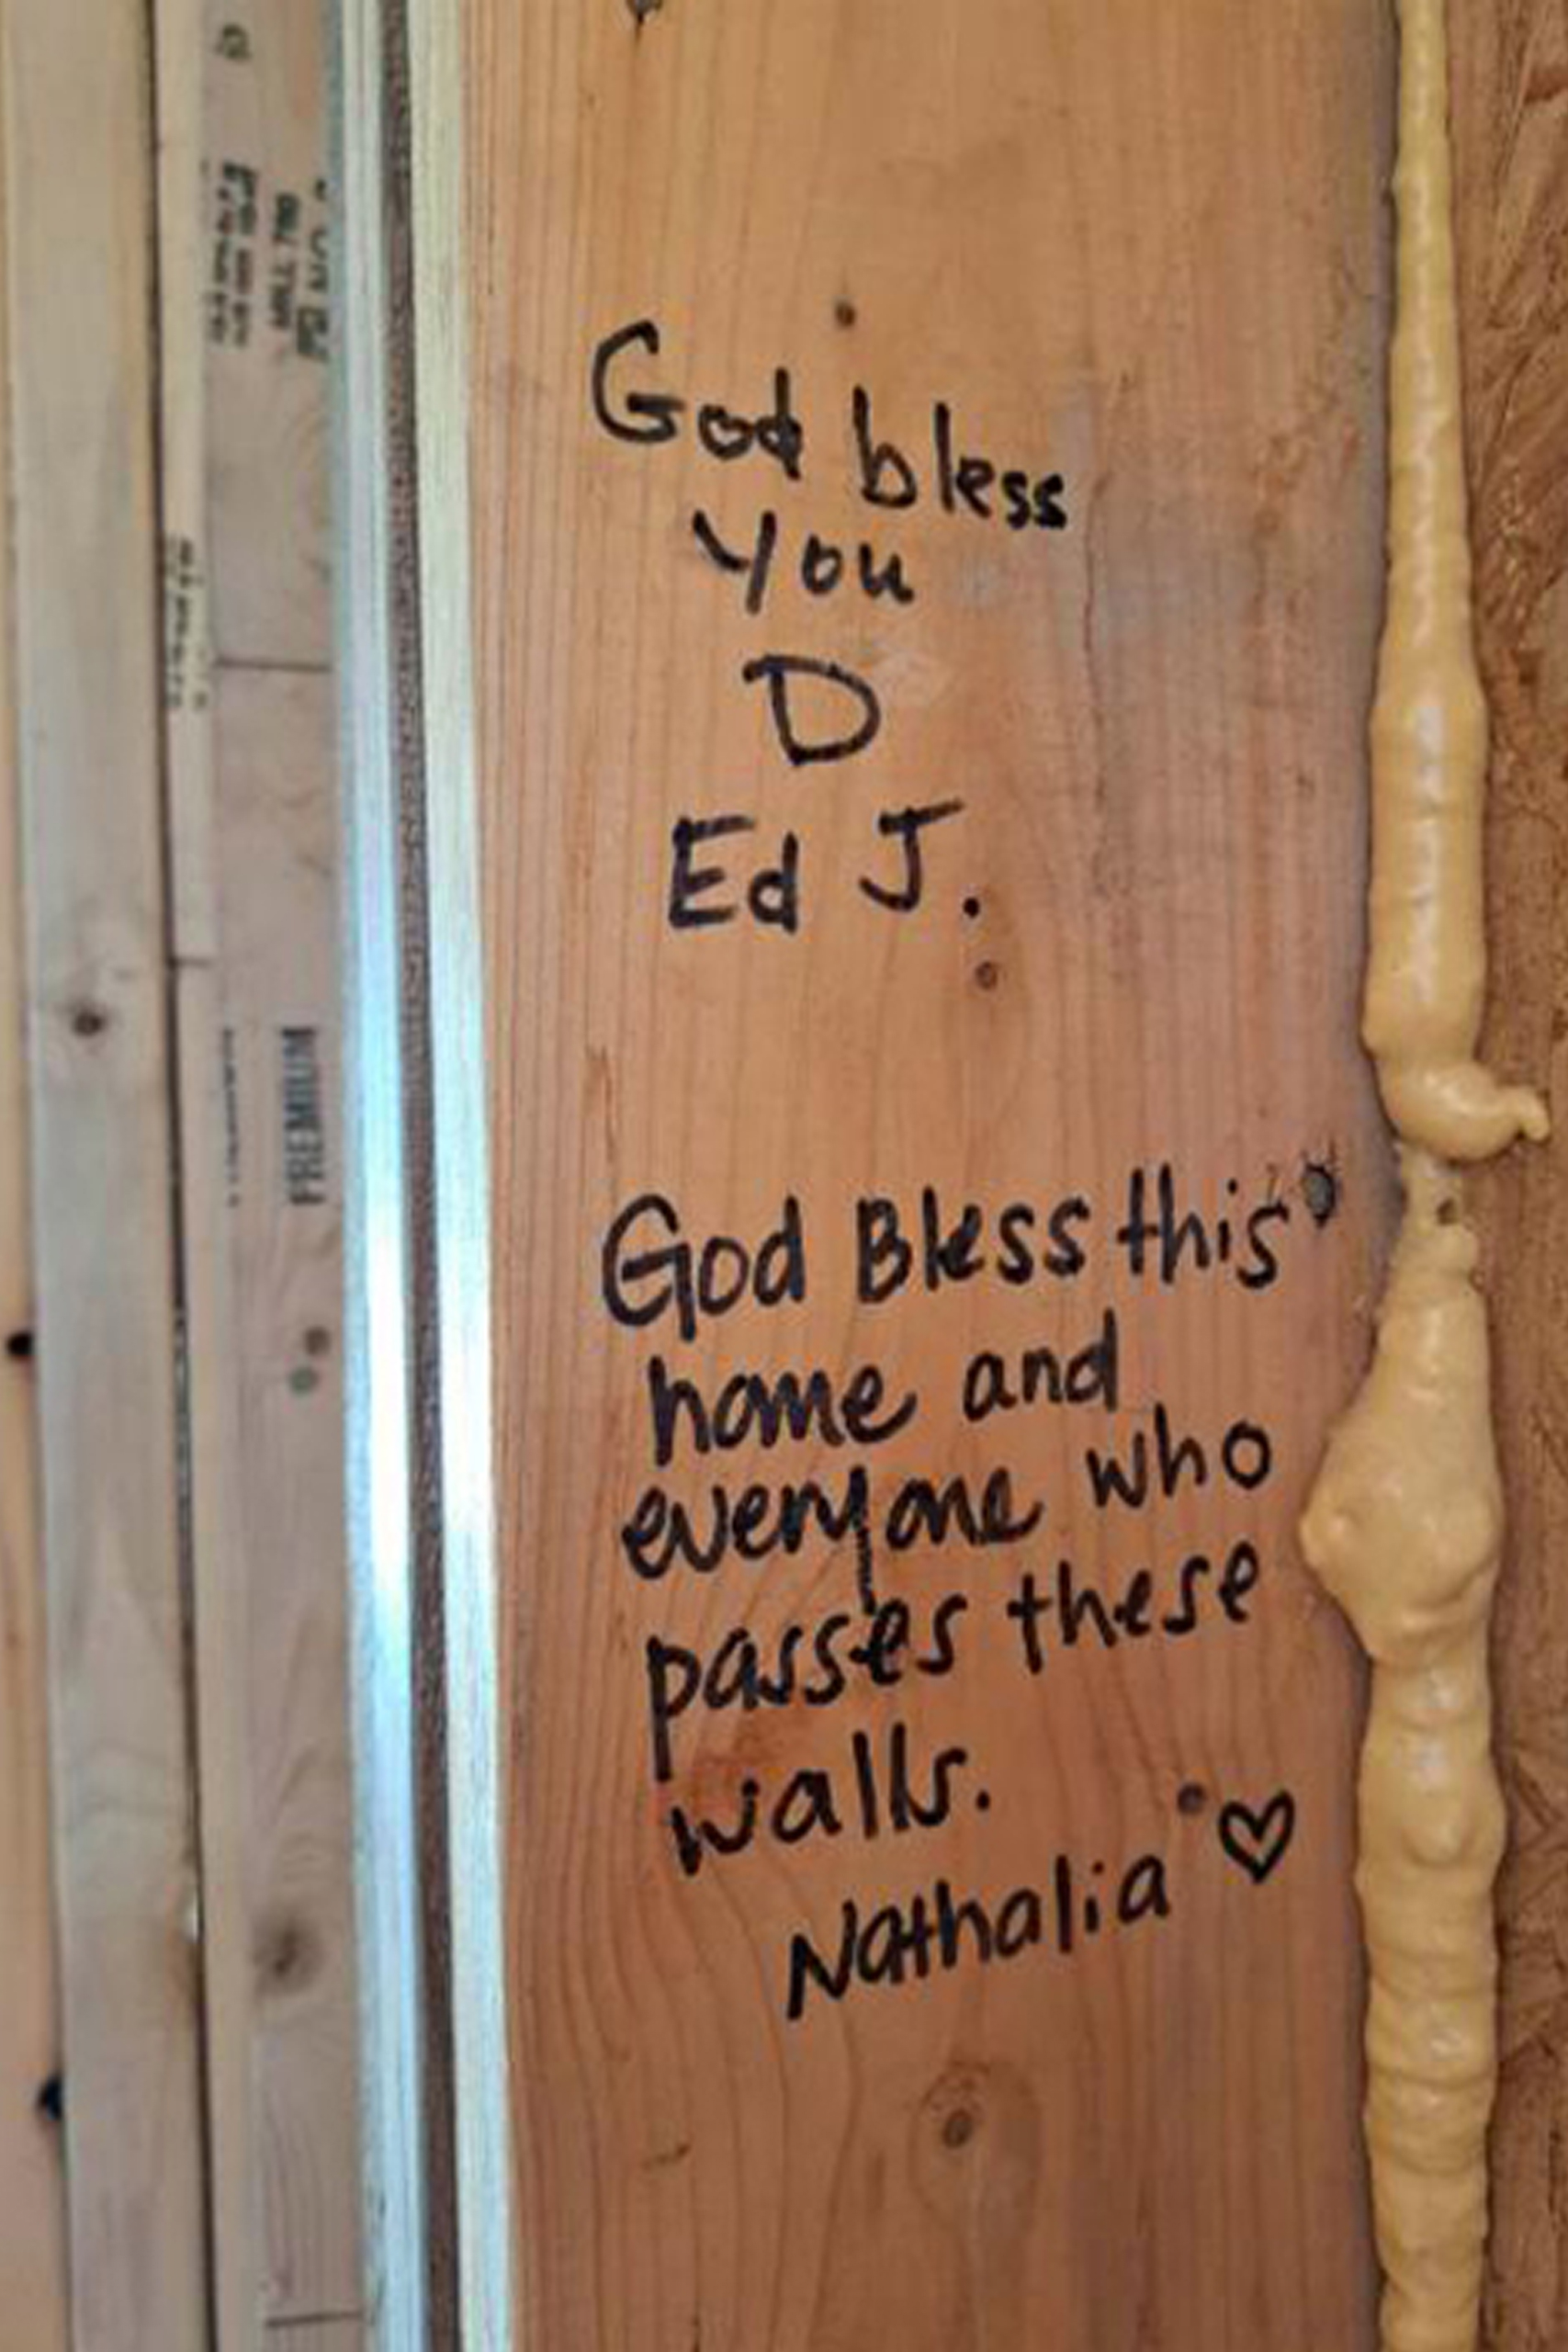 God bless
You
D
Ed J.
God Bless this
home and
everyone who
passes these
walls.
Nathalia ♡
PREMIUM